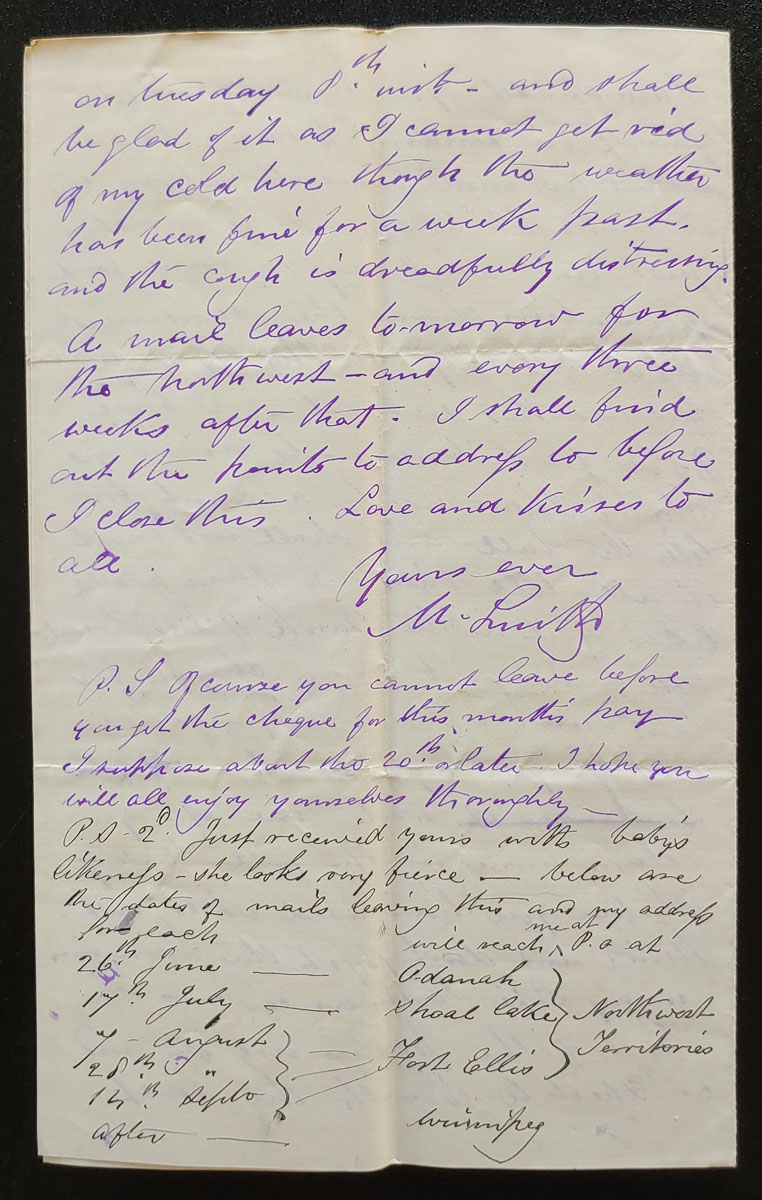 on tuesday 8th inst - and shall
be glad of it as I cannot get rid
of my cold here though the weather
has been fine for a week past.
and the cough is dreadfully distressing.
A mail leaves to-morrow for
the northwest - and every three
weeks after that. I shall find
out the points to address to before
I close this. Love and Kisses to
all.
Yours ever
M. Smith
P. S. Of course you cannot leave before
you get the cheque for this month's pay
I suppose about the 20th or later. I hope you
will all enjoy yourselves thoroughly -
P.S - 2d. Just received yours with baby's
likeness - she looks very fierce - below are
the dates of mails leaving this and my address
for each will reach me at P.O at
26th June — Odanah
17th July — Shoal lake Northwest
7 - August Territories
28th " Fort Ellis
1th Septo
after — Winnipeg